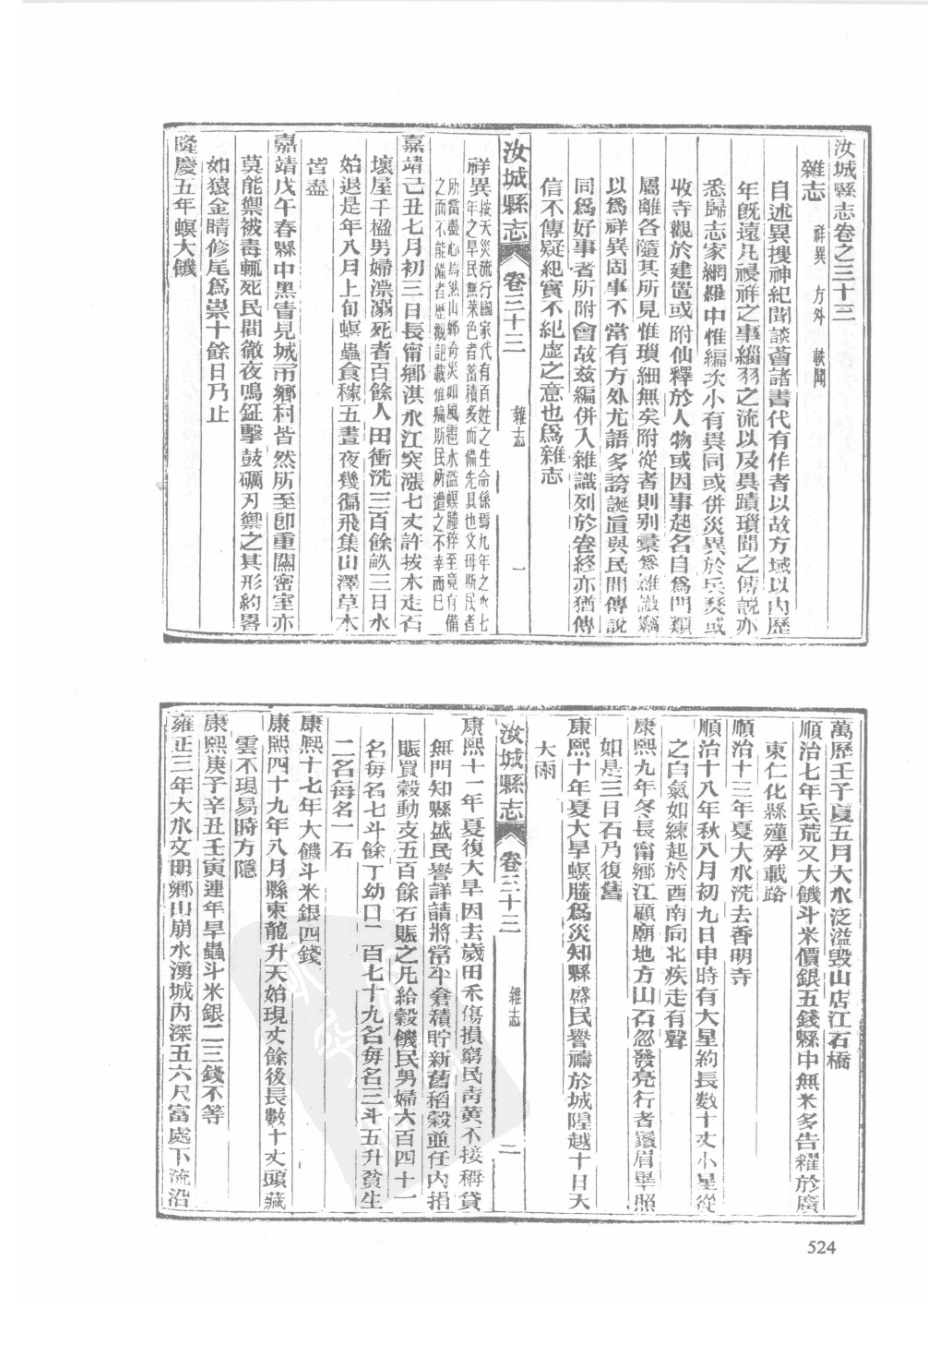 汝城縣志卷之三十三
雜志 祥異 方外 軼聞
自述異搜神紀聞談薈諸書代有作者以故方域以内歷
年旣遠凡祲祥之事緇羽之流以及異蹟瑣聞之傳説亦
悉歸志家網羅中惟編次小有異同或併災異於兵燹或
收寺觀於建置或附仙釋於人物或因事起名自爲門類
屬離各隨其所見惟瑣細無矣附從者則别彙爲雜識竊
以爲祥異固事不常有方外尤語多誇誕眞與民間傳說
同爲好事者所附會故兹編併入雜識列於卷終亦猶傳
信不傳疑紀實不紀虛之意也爲雜志
汝城縣志 卷三十三 雜志 一
祥異 按天災流行國家代有百姓之生命係焉九年之水七
年之旱民無菜色者蓄積多而備先具也父母斯民者
所當盡心焉然山鄉奇災如風雹水溢螟螣猝至竟有備
之而不能備者歷觀記載惟痛斯民所遭之不幸而已
嘉靖己丑七月初三日長甯鄉淇水江突漲七丈許拔木走石
壞屋千楹男婦漂溺死者百餘人田衝洗三百餘畝三日水
始退是年八月上旬螟蟲食稼五晝夜幾徧飛集山澤草木
皆盡
嘉靖戊午春縣中黑眚見城市鄉村皆然所至卽重關密室亦
莫能禦被毒輒死民間徹夜鳴鉦擊鼓礪刃禦之其形約畧
如猿金睛修尾爲祟十餘日乃止
隆慶五年螟大饑
萬歷壬子夏五月大水泛溢毀山店江石橋
順治七年兵荒又大饑斗米價銀五錢縣中無米多告糴於廣
東仁化縣殣殍載路
順治十三年夏大水洗去香明寺
順治十八年秋八月初九日申時有大星約長數十丈小星從
之白氣如練起於酉南向北疾走有聲
康熙九年冬長甯鄉江頭廟地方山石忽發亮行者鬚眉畢照
如是三日石乃復舊
康熙十年夏大旱螟螣爲災知縣盛民譽禱於城隍越十日大
大雨
汝城縣志 卷三十三 雜志 二
康熙十一年夏復大旱因去歲田禾傷損窮民靑黄不接稱貸
無門知縣盛民譽詳請將常平倉積貯新舊稻穀並任内捐
賑買穀動支五百餘石賑之凡給穀饑民男婦六百四十一
名每名七斗餘丁幼口二百七十九名每名三斗五升貧生
二名每名一石
康熙十七年大饑斗米銀四錢
康熙四十九年八月縣東龍升天始現丈餘後長數十丈頭藏
雲不現易時方隱
康熙庚子辛丑壬寅連年旱蟲斗米銀二三錢不等
雍正三年大水文明鄉山崩水湧城内深五六尺富處下流沿
524